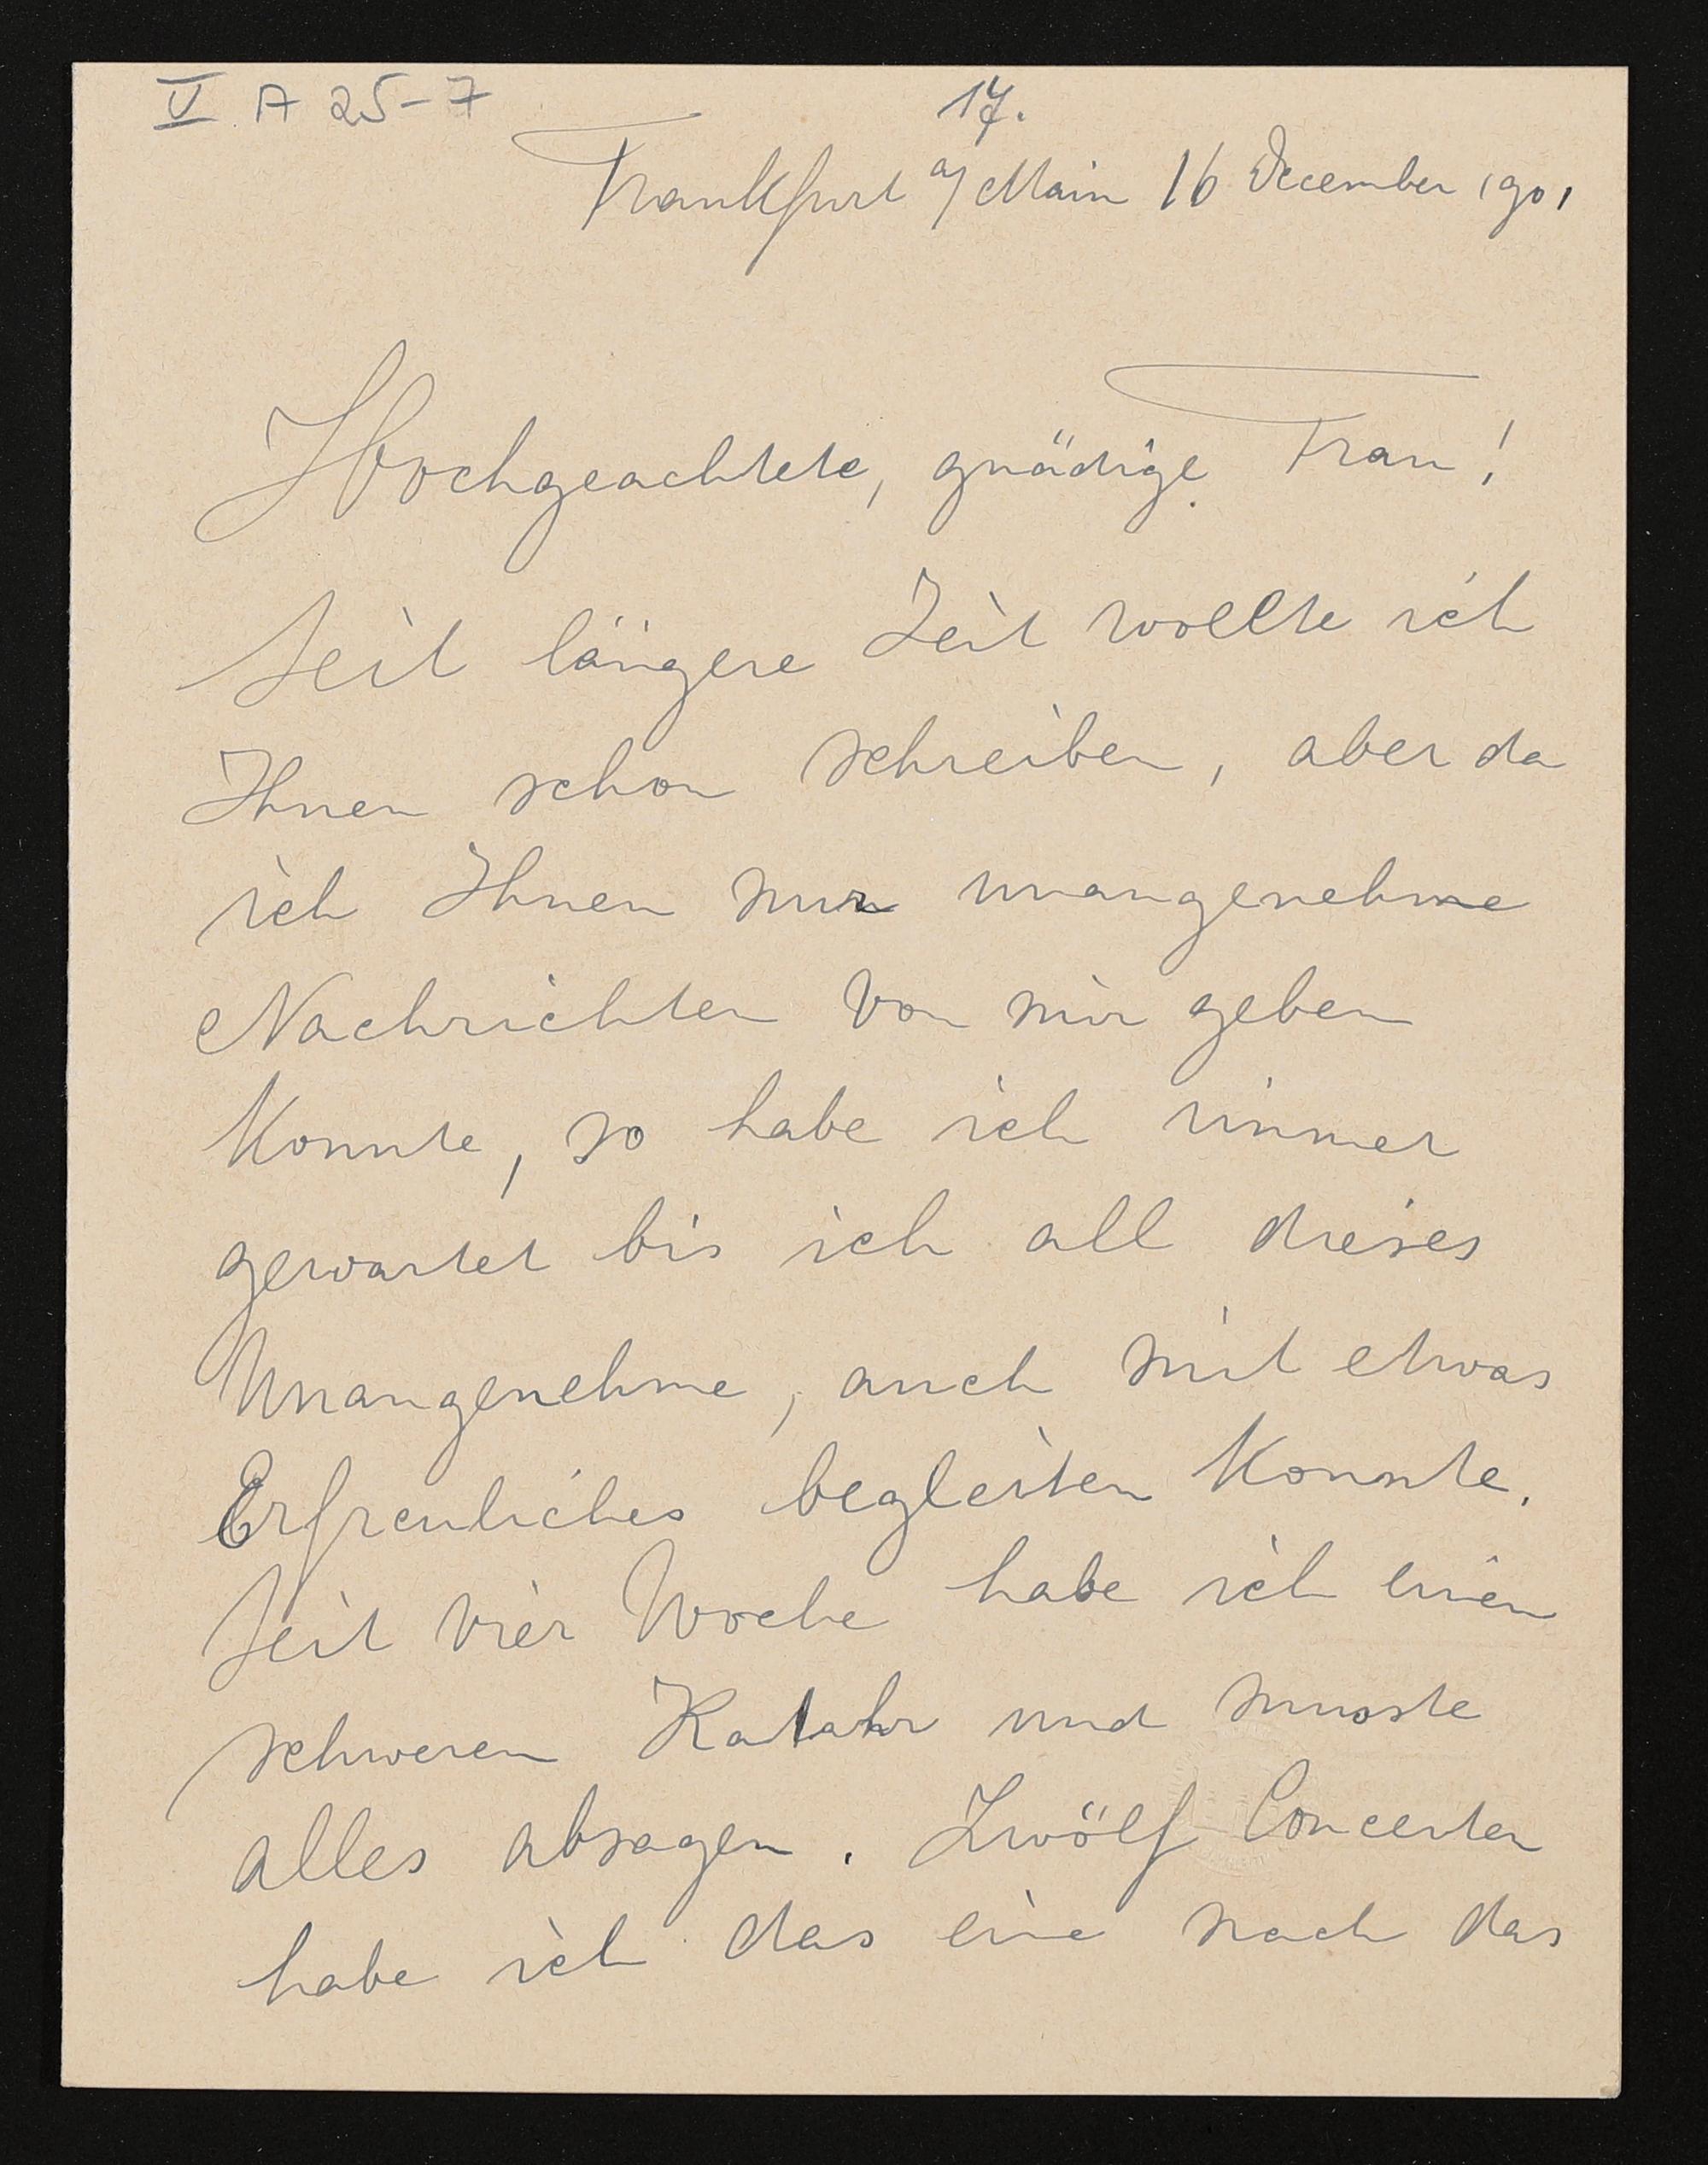 V A 25-7
17.
Frankfurt a/Main 16 December 1901
Hochgeachtete, gnädige Frau!
Seit längere Zeit wollte ich
Ihnen schon schreiben, aber da
ich Ihnen nur unangenehme
Nachrichten von mir geben
konnte, so habe ich immer
gewartet bis ich all dieses
Unangenehme, auch mit etwas
Erfreuliches begleiten konnte.
Seit vier Woche habe ich einen
schweren Katahr und musste
alles absagen. Zwölf Concerten
habe ich das eine nach das